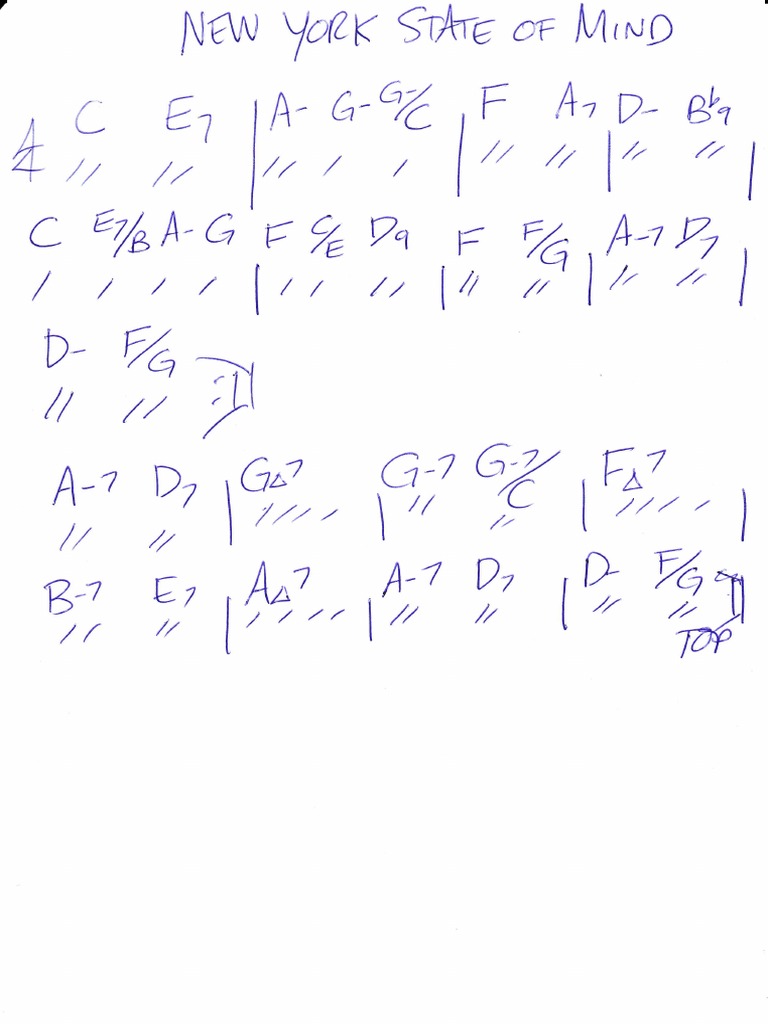 NEW YORK STATE OF MIND
4/4 C E7 | A- G- G-/C | F A7 | D- Bb9 |
// // | // / / | // // | // // |
C E7/B A- G | F C/E D9 | F F/G | A-7 D7 |
/ / / / | / / // | // // | // // |
D- F/G :||
// //
A-7 D7 | G△7 | G-7 G-7/C | F△7 |
// // | //// | // // | //// |
B-7 E7 | A△7 | A-7 D7 | D- F/G ||
// // | //// | // // | // //
TOP